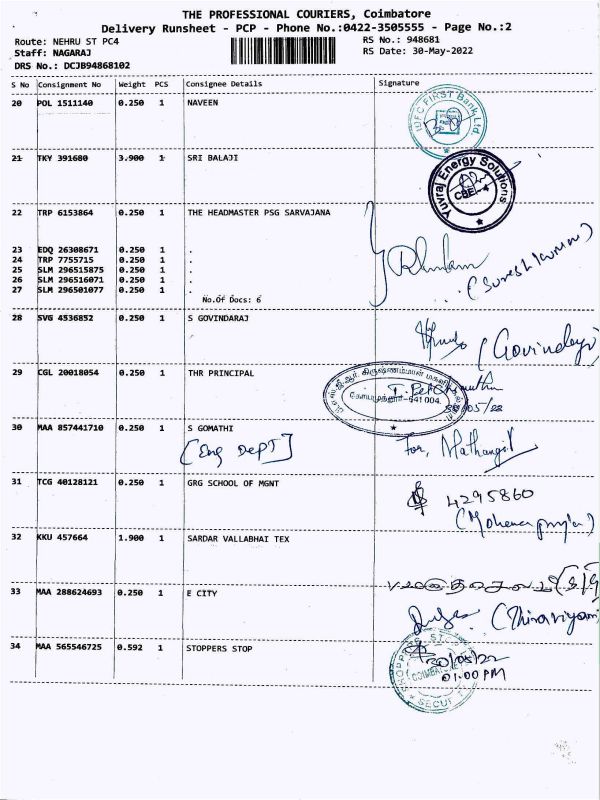 THE PROFESSIONAL COURIERS, Coimbatore
Delivery Runsheet - PCP - Phone No.:0422-3505555 - Page No.:2
Route: NEHRU ST PC4 RS No.: 948681
Staff: NAGARAJ RS Date: 30-May-2022
DRS No.: DCJB94868102
S No Consignment No Weight PCS Consignee Details Signature
20 POL 1511140 0.250 1 NAVEEN
IDFC FIRST Bank Ltd
21 TKY 391680 3.900 1 SRI BALAJI
Yuvraj Energy Solutions
CBE-4
22 TRP 6153864 0.250 1 THE HEADMASTER PSG SARVAJANA
23 EDQ 26308671 0.250 1 .
24 TRP 7755715 0.250 1 .
25 SLM 296515875 0.250 1 .
26 SLM 296516071 0.250 1 .
27 SLM 296501077 0.250 1 .
No.Of Docs: 6
28 SVG 4536852 0.250 1 S GOVINDARAJ
(Govindaraj)
29 CGL 20018054 0.250 1 THR PRINCIPAL
கோயமுத்தூர்-641 004.
30/05/22
30 MAA 857441710 0.250 1 S GOMATHI
[Eng DEPT]
For, Mathangi
31 TCG 40128121 0.250 1 GRG SCHOOL OF MGNT
4295860
32 KKU 457664 1.900 1 SARDAR VALLABHAI TEX
33 MAA 288624693 0.250 1 E CITY
(Thiraviyam)
34 MAA 565546725 0.592 1 STOPPERS STOP
30/05/22
01:00 PM